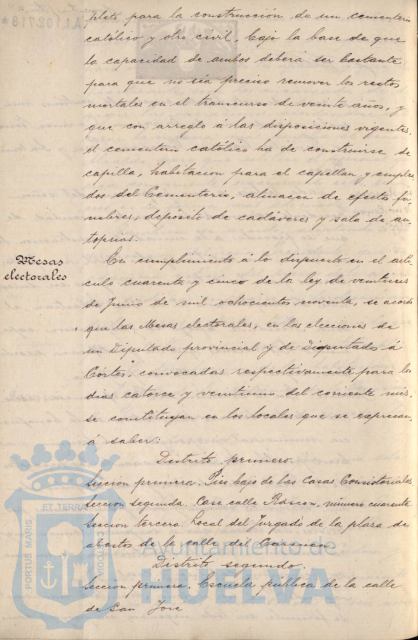 pleto para la construcción de un cementerio
católico y otro civil bajo la base de que
la capacidad de ambos deberá ser bastante
para que no sea preciso remover los restos
mortales en el transcurso de veinte años, y
que con arreglo á las disposiciones vigentes
el cementerio católico ha de construirse de
capilla, habitacion para el capellan y emplea
dos del Cementerio, almacen de efectos fú
nebres, depósito de cadáveres y sala de au
topsias.
Mesas
electorales
En cumplimiento á lo dispuesto en el artí
culo cuarenta y cinco de la ley de veintiseis
de Junio de mil ochocientos noventa, se acordó
que las Mesas electorales, en las elecciones de
un Diputado provincial y de Diputados á
Córtes, convocadas respectivamente para los
dias catorce y veintiuno del corriente mes,
se constituyan en los locales que se expresan,
á saber:
Distrito primero.
Seccion primera. Piso bajo de las Casas Consistoriales
Seccion segunda. Casa calle Rascon, número cuarenta
Seccion tercera. Local del Juzgado de la plaza de
abastos de la calle del
Distrito segundo.
Seccion primera. Escuela pública de la calle
de San José
PORTUS MARIS ET TERRAE CUSTODIA
Ayuntamiento de
HUELVA